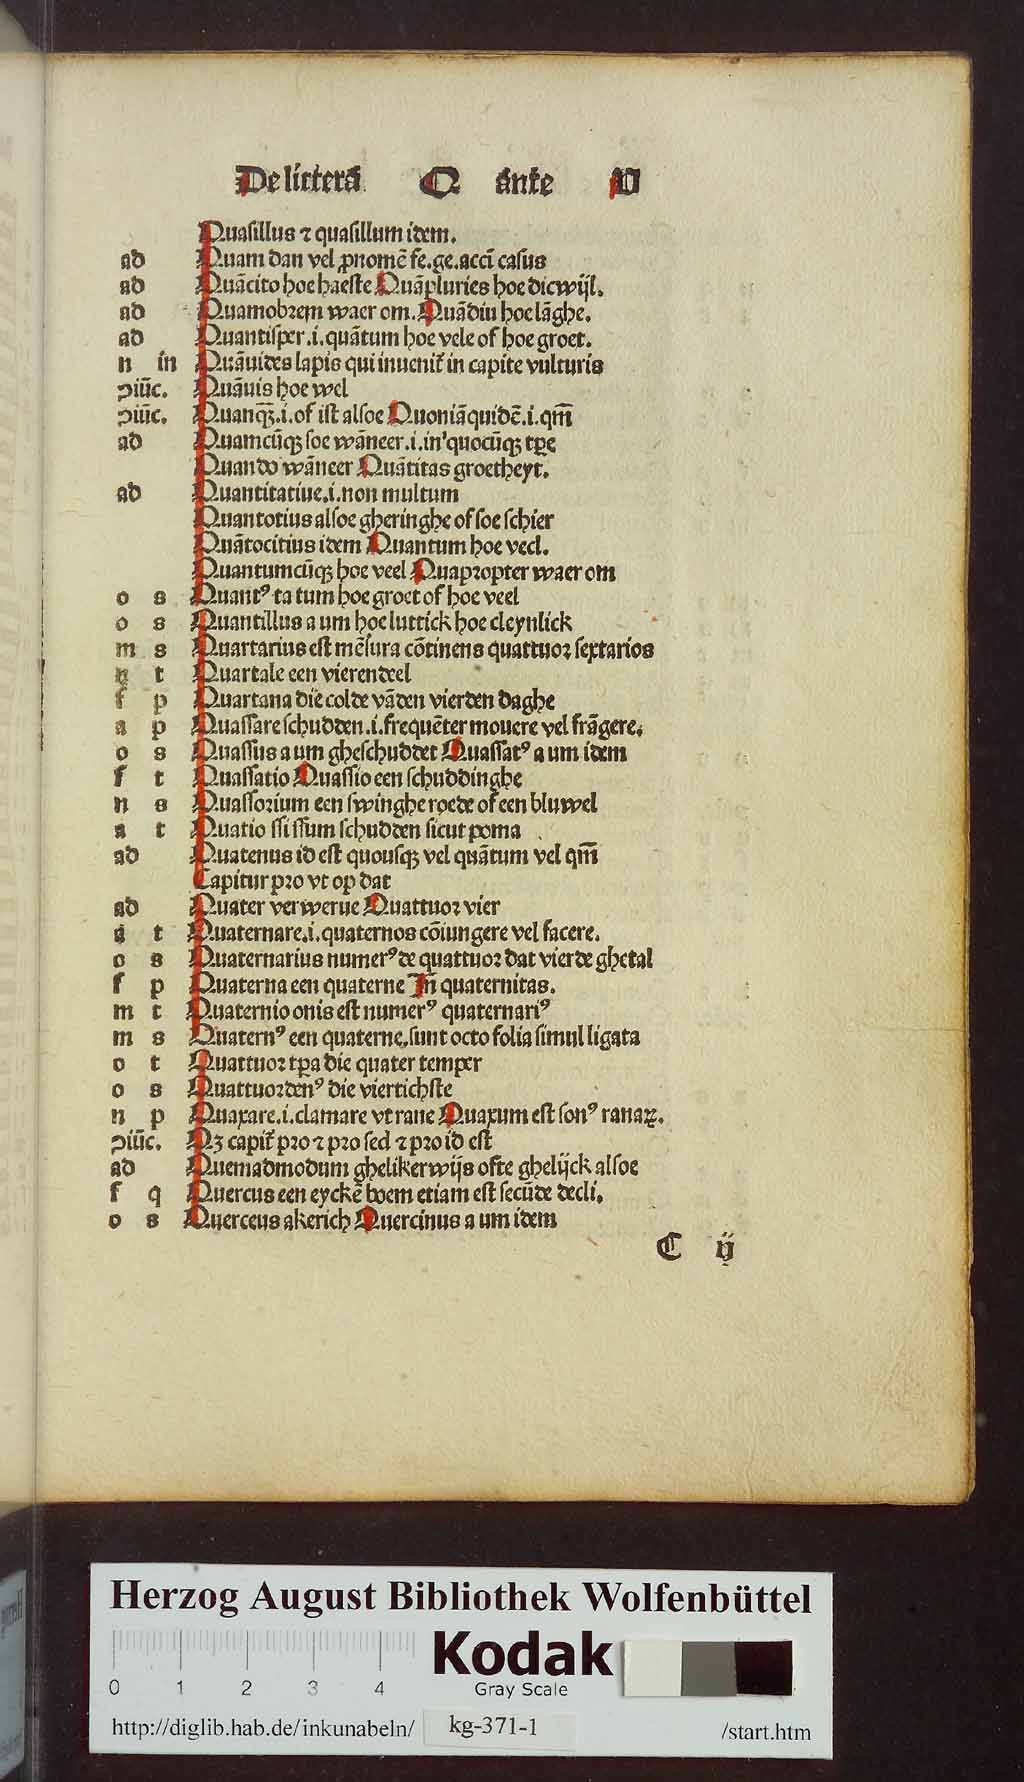 De litterā Q ānte V
Quasillus ⁊ quasillum idem.
ad Quam dan vel ꝓnomē fe.ge.acci̅ casus
ad Quācito hoe haeste Quāpluries hoe dicwijl.
ad Quamobꝛem waer om. Quādiu hoe lāghe.
ad Quantisper.i.quātum hoe vele of hoe groet.
n in Quāuides lapis qui inuenit᷑ in capite vulturis
ɔiūc. Quāuis hoe wel
ɔiūc. Quanqꝫ.i.of ist alsoe Quoniāquidē.i.qm̅
ad Quamcūqꝫ soe wāneer.i.in quocūqꝫ tꝑe
Quando wāneer Quātitas groetheyt.
ad Quantitatiue.i.non multum
Quantotius alsoe gheringhe of soe schier
Quātocitius idem Quantum hoe veel.
Quantumcūqꝫ hoe veel Quapꝛopter waer om
o s Quantꝰ ta tum hoe groet of hoe veel
o s Quantillus a um hoe luttick hoe cleynlick
m s Quartarius est mēsura cōtinens quattuoꝛ sextarios
n t Quartale een vierendeel
f p Quartana die colde vāden vierden daghe
a p Quassare schudden.i.frequēter mouere vel frāgere.
o s Quassus a um gheschuddet Quassatꝰ a um idem
f t Quassatio Quassio een schuddinghe
n s Quassoꝛium een swinghe roede of een bluwel
a t Quatio ssi ssum schudden sicut poma
ad Quatenus id est quousqꝫ vel quātum vel qm̅
Capitur pꝛo vt op dat
ad Quater verwerue Quattuoꝛ vier
a t Quaternare.i.quaternos cōiungere vel facere.
o s Quaternarius numerꝰ de quattuoꝛ dat vierde ghetal
f p Quaterna een quaterne In̄ quaternitas.
m t Quaternio onis est numerꝰ quaternariꝰ
m s Quaternꝰ een quaterne.sunt octo folia simul ligata
o t Quattuoꝛ tꝑa die quater temper
o s Quattuoꝛdenꝰ die viertichste
n p Quaxare.i.clamare vt rane Quaxum est sonꝰ ranaꝝ.
ɔiūc. Qꝫ capit᷑ pꝛo ⁊ pꝛo sed ⁊ pꝛo id est
ad Quemadmodum ghelikerwijs ofte ghelijck alsoe
f q Quercus een eyckē boem etiam est secūde decli.
o s Querceus akerich Quercinus a um idem
C ij
Herzog August Bibliothek Wolfenbüttel
Kodak
Gray Scale
0 1 2 3 4
http://diglib.hab.de/inkunabeln/ kg-371-1 /start.htm